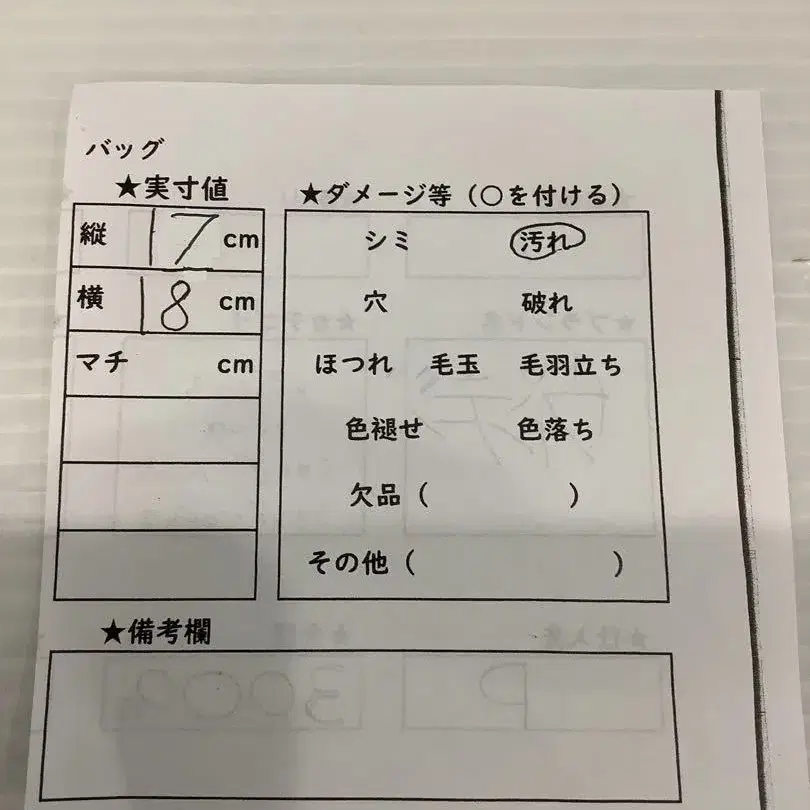 バッグ
★実寸値
縦 17 cm
横 18 cm
マチ cm
★ダメージ等（○を付ける）
シミ 汚れ
穴 破れ
ほつれ 毛玉 毛羽立ち
色褪せ 色落ち
欠品（ ）
その他（ ）
★備考欄